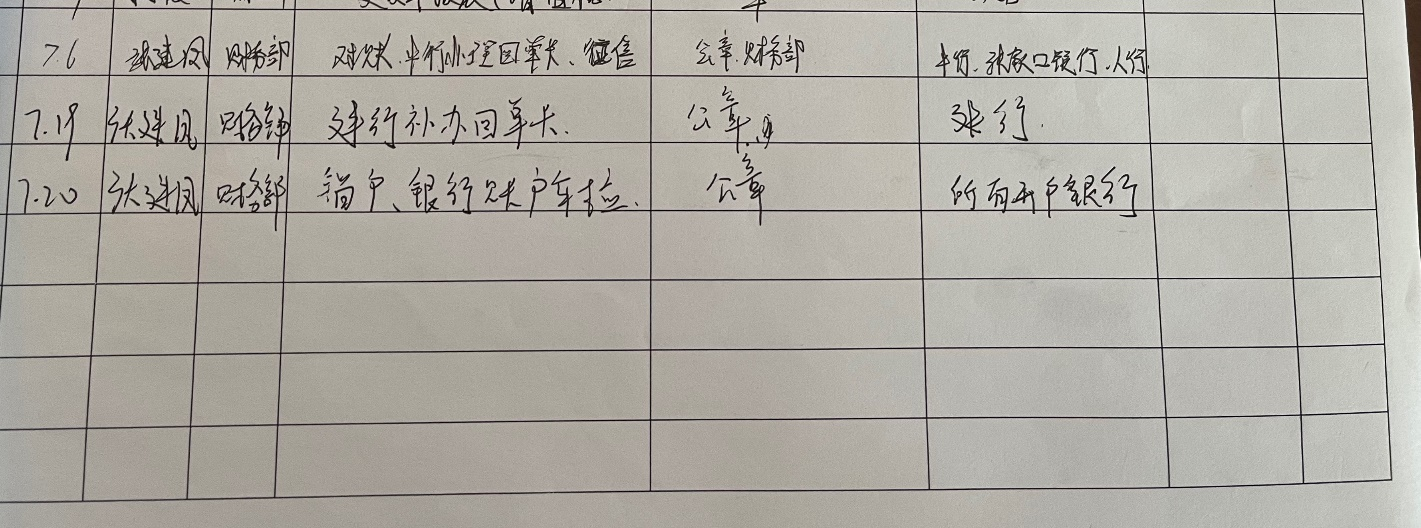 7.6 张建凤 财务部 对账.办理回单卡、征信 公章.财务部 张家口银行.人行
7.19 张建凤 财务部 建行补办回单卡. 公章. 建行.
7.20 张建凤 财务部 销户、银行账户年检. 公章 所有开户银行